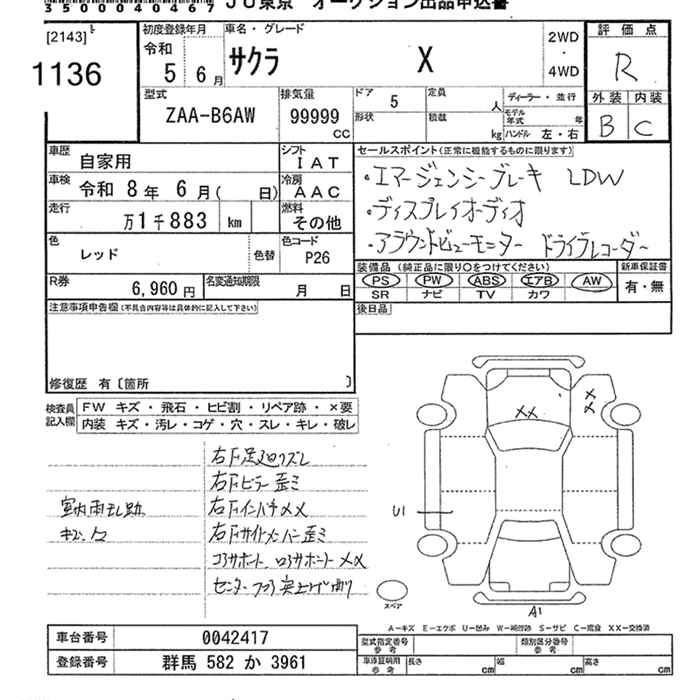 35000040467 JU東京 オークション出品申込書
[2143]
1136
初度登録年月
令和
5 6月
車名・グレード
サクラ X
2WD
・
4WD
評価点
R
外装 内装
B C
型式
ZAA-B6AW
排気量
99999
cc
ドア 5
形状
定員 人
積載 kg
ディーラー・並行
モデル年式 年
ハンドル 左・右
車歴
自家用
シフト
IAT
車検
令和 8年 6月( 日)
冷房
AAC
走行
万1千883 km
燃料
その他
色
レッド
色替
色コード
P26
R券
6,960円
名変通知期限
月 日
セールスポイント(正常に機能するものに限ります)
・エマージェンシーブレーキ LDW
・ディスプレイオーディオ
・アラウンドビューモニター ドライブレコーダー
装備品 (純正品に限り○をつけてください)
PS PW ABS エアB AW
SR ナビ TV カワ
新車保証書
有・無
後日品
注意事項申告欄(不具合内容等は具体的に記入して下さい)
修復歴 有〔箇所 〕
検査員記入欄
FW キズ・飛石・ヒビ割・リペア跡・×要
内装 キズ・汚レ・コゲ・穴・スレ・キレ・破レ
右F足廻リズレ
右Fピラー歪ミ
室内雨モレ跡 右FインパネXX
右Fサイドメンバー歪ミ
コアサポート、ロアサポートXX
センターフロア突上ゲ有り
XX
XX
U1
A1
スペア
A－キズ E－エクボ U－凹み W－補修跡 S－サビ C－腐食 XX－交換済
車台番号 0042417
登録番号 群馬 582 か 3961
型式指定番号
参考
類別区分番号
参考
車庫証明用
参考
長さ cm
幅 cm
高さ cm